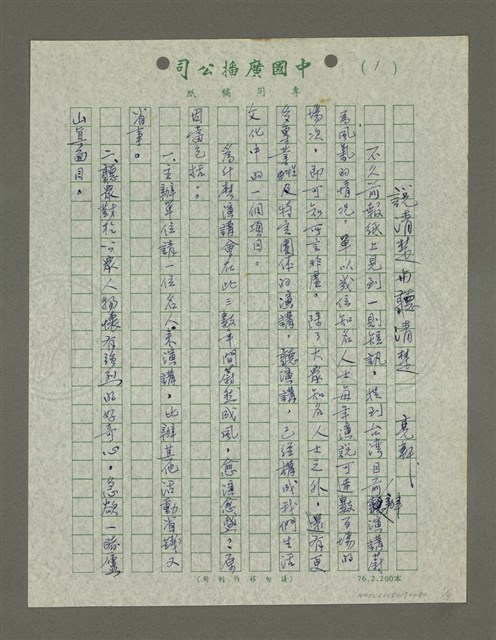 中國廣播公司
(1)
專用稿紙
說清楚與聽清楚 亮軒
不久前報紙上見到一則短訊，提到台灣目前辦演講蔚
為風氣的情況，單以幾位知名人士每年演說可達數百場的
場次，即可知所言非虛。除了大眾知名人士之外，還有更
多專業性及特定團体的演講，聽演講，已經構成我們生活
文化中的一個項目。
為什麼演講會在此三數年間蔚然成風，愈演愈盛？原
因當包括：
一、主辦單位請一位名人來演講，比辦其他活動省錢又
省事。
二、聽眾對於公眾人物懷有強烈的好奇心，急欲一睹廬
山真面目。
(請勿移作別用)
76.2.200本